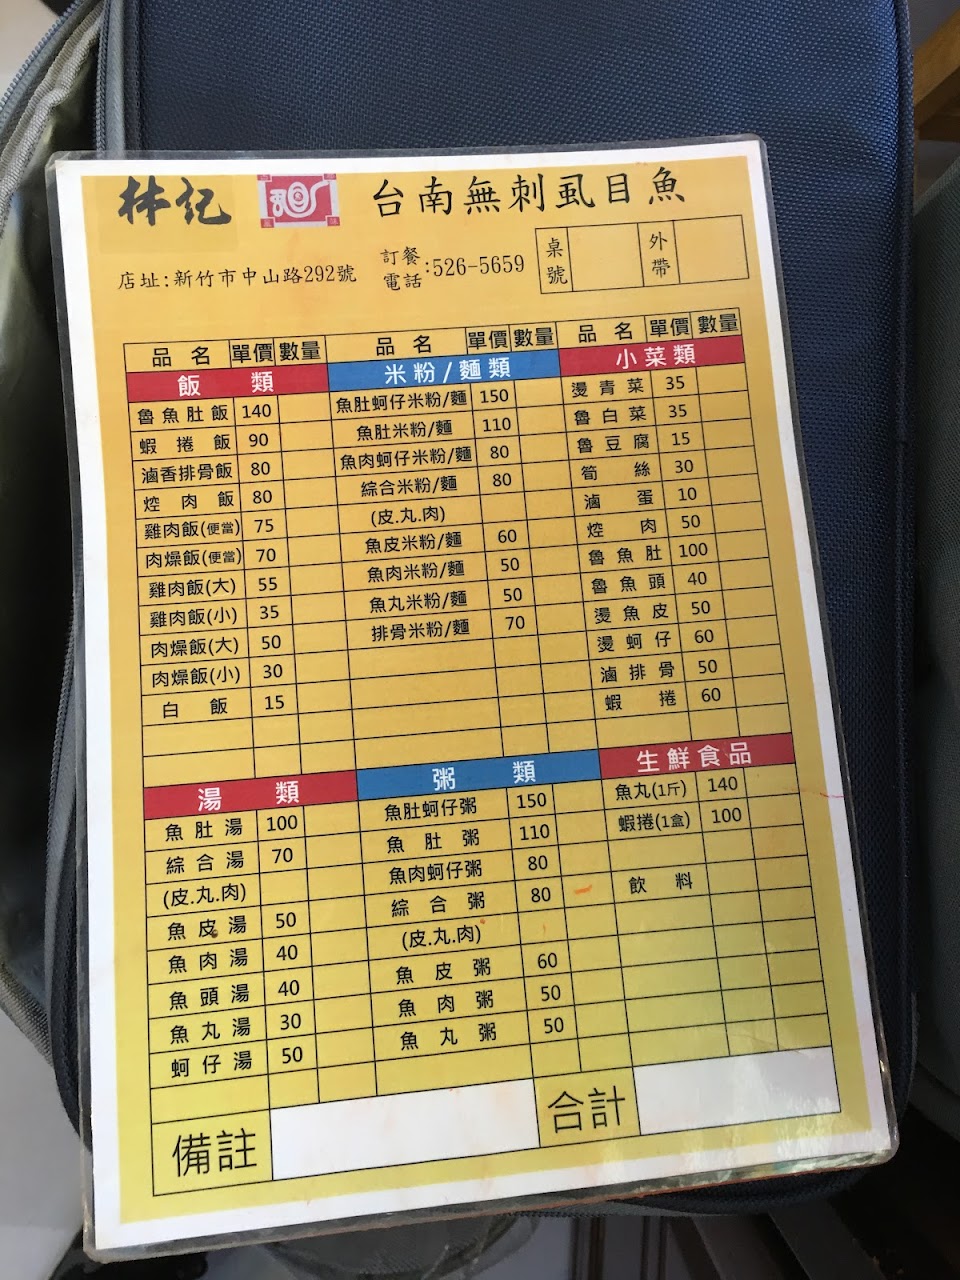 林記 台南無刺虱目魚
店址:新竹市中山路292號 訂餐電話:526-5659 桌號 外帶
品名 單價 數量 品名 單價 數量 品名 單價 數量
飯類
魯魚肚飯 140
蝦捲飯 90
滷香排骨飯 80
焢肉飯 80
雞肉飯(便當) 75
肉燥飯(便當) 70
雞肉飯(大) 55
雞肉飯(小) 35
肉燥飯(大) 50
肉燥飯(小) 30
白飯 15
米粉/麵類
魚肚蚵仔米粉/麵 150
魚肚米粉/麵 110
魚肉蚵仔米粉/麵 80
綜合米粉/麵 80
(皮.丸.肉)
魚皮米粉/麵 60
魚肉米粉/麵 50
魚丸米粉/麵 50
排骨米粉/麵 70
小菜類
燙青菜 35
魯白菜 35
魯豆腐 15
筍絲 30
滷蛋 10
焢肉 50
魯魚肚 100
魯魚頭 40
燙魚皮 50
燙蚵仔 60
滷排骨 50
蝦捲 60
湯類
魚肚湯 100
綜合湯 70
(皮.丸.肉)
魚皮湯 50
魚肉湯 40
魚頭湯 40
魚丸湯 30
蚵仔湯 50
粥類
魚肚蚵仔粥 150
魚肚粥 110
魚肉蚵仔粥 80
綜合粥 80
(皮.丸.肉)
魚皮粥 60
魚肉粥 50
魚丸粥 50
生鮮食品
魚丸(1斤) 140
蝦捲(1盒) 100
飲料
備註 合計